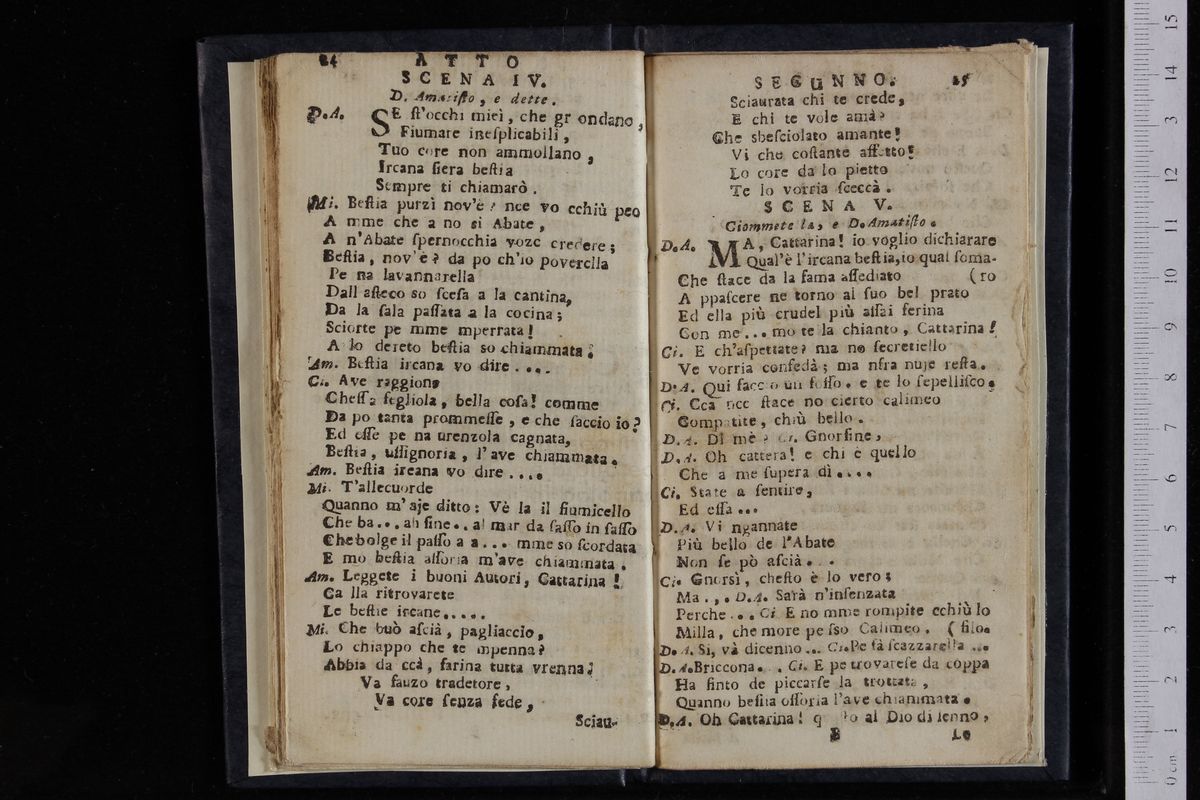 24 ATTO
SCENA IV.
D. Amatisto, e dette.
D.A. SE st'occhi miei, che gr ondano,
Fiumare inesplicabili,
Tuo core non ammollano,
Ircana fiera bestia
Sempre ti chiamarò.
Mi. Bestia purzì nov'è? nce vo cchiù peo
A mme che a no si Abate,
A n'Abate spernocchia voze credere;
Bestia, nov'è? da po ch'io poverella
Pe na lavannarella
Dall asteco so scesa a la cantina,
Da la sala passata a la cocina;
Sciorte pe mme mperrata!
A lo dereto bestia so chiammata.
Am. Bestia ircana vo dire....
Ci. Ave raggione
Chessa fegliola, bella cosa! comme
Da po tanta prommesse, e che faccio io?
Ed esse pe na urenzola cagnata,
Bestia, ussignoria, l'ave chiammata.
Am. Bestia ircana vo dire....
Mi. T'allecuorde
Quanno m'aje ditto: Vè la il fiumicello
Che ba... ah fine.. al mar da sasso in sasso
Che bolge il passo a a... mme so scordata
E mo bestia assoria m'ave chiammata.
Am. Leggete i buoni Autori, Cattarina!
Ca lla ritrovarete
Le bestie ircane.....
Mi. Che buò ascià, pagliaccio,
Lo chiappo che te mpenna?
Abbia da ccà, farina tutta vrenna!
Va fauzo tradetore,
Va core senza fede,
Sciau-
SECUNNO. 25
Sciaurata chi te crede,
E chi te vole amà?
Che sbesciolato amante!
Vi che costante affetto!
Lo core da lo pietto
Te lo vorria sceccà.
SCENA V.
Ciommetella, e D. Amatisto.
D.A. MA, Cattarina! io voglio dichiarare
Qual'è l'ircana bestia, io qual soma-
Che stace da la fama assediato (ro
A ppascere ne torno al suo bel prato
Ed ella più crudel più assai ferina
Con me... mo te la chianto, Cattarina!
Ci. E ch'aspettate? ma no secretiello
Ve vorria confedà; ma nfra nuje resta.
D.A. Qui faccio un fosso. e te lo sepellisco.
Ci. Cca nce stace no cierto calimeo
Compatite, chiù bello.
D.A. Dì mè? Ci. Gnorsine,
D.A. Oh cattera! e chi è quello
Che a me supera dì....
Ci. State a sentire,
Ed essa...
D.A. Vi ngannate
Più bello de l'Abate
Non se pò ascià...
Ci. Gnorsì, chesto è lo vero;
Ma... D.A. Sarà n'insenzata
Perche... Ci E no mme rompite cchiù lo
Milla, che more pe sso Calimeo. (filo.
D.A. Si, và dicenno... Ci. Pe fà scazzarella...
D.A. Briccona... Ci. E pe trovarese da coppa
Ha finto de piccarse la trottata,
Quanno bestia ossoria l'ave chiammata.
D.A. Oh Cattarina! al Dio di lenno,
B Le